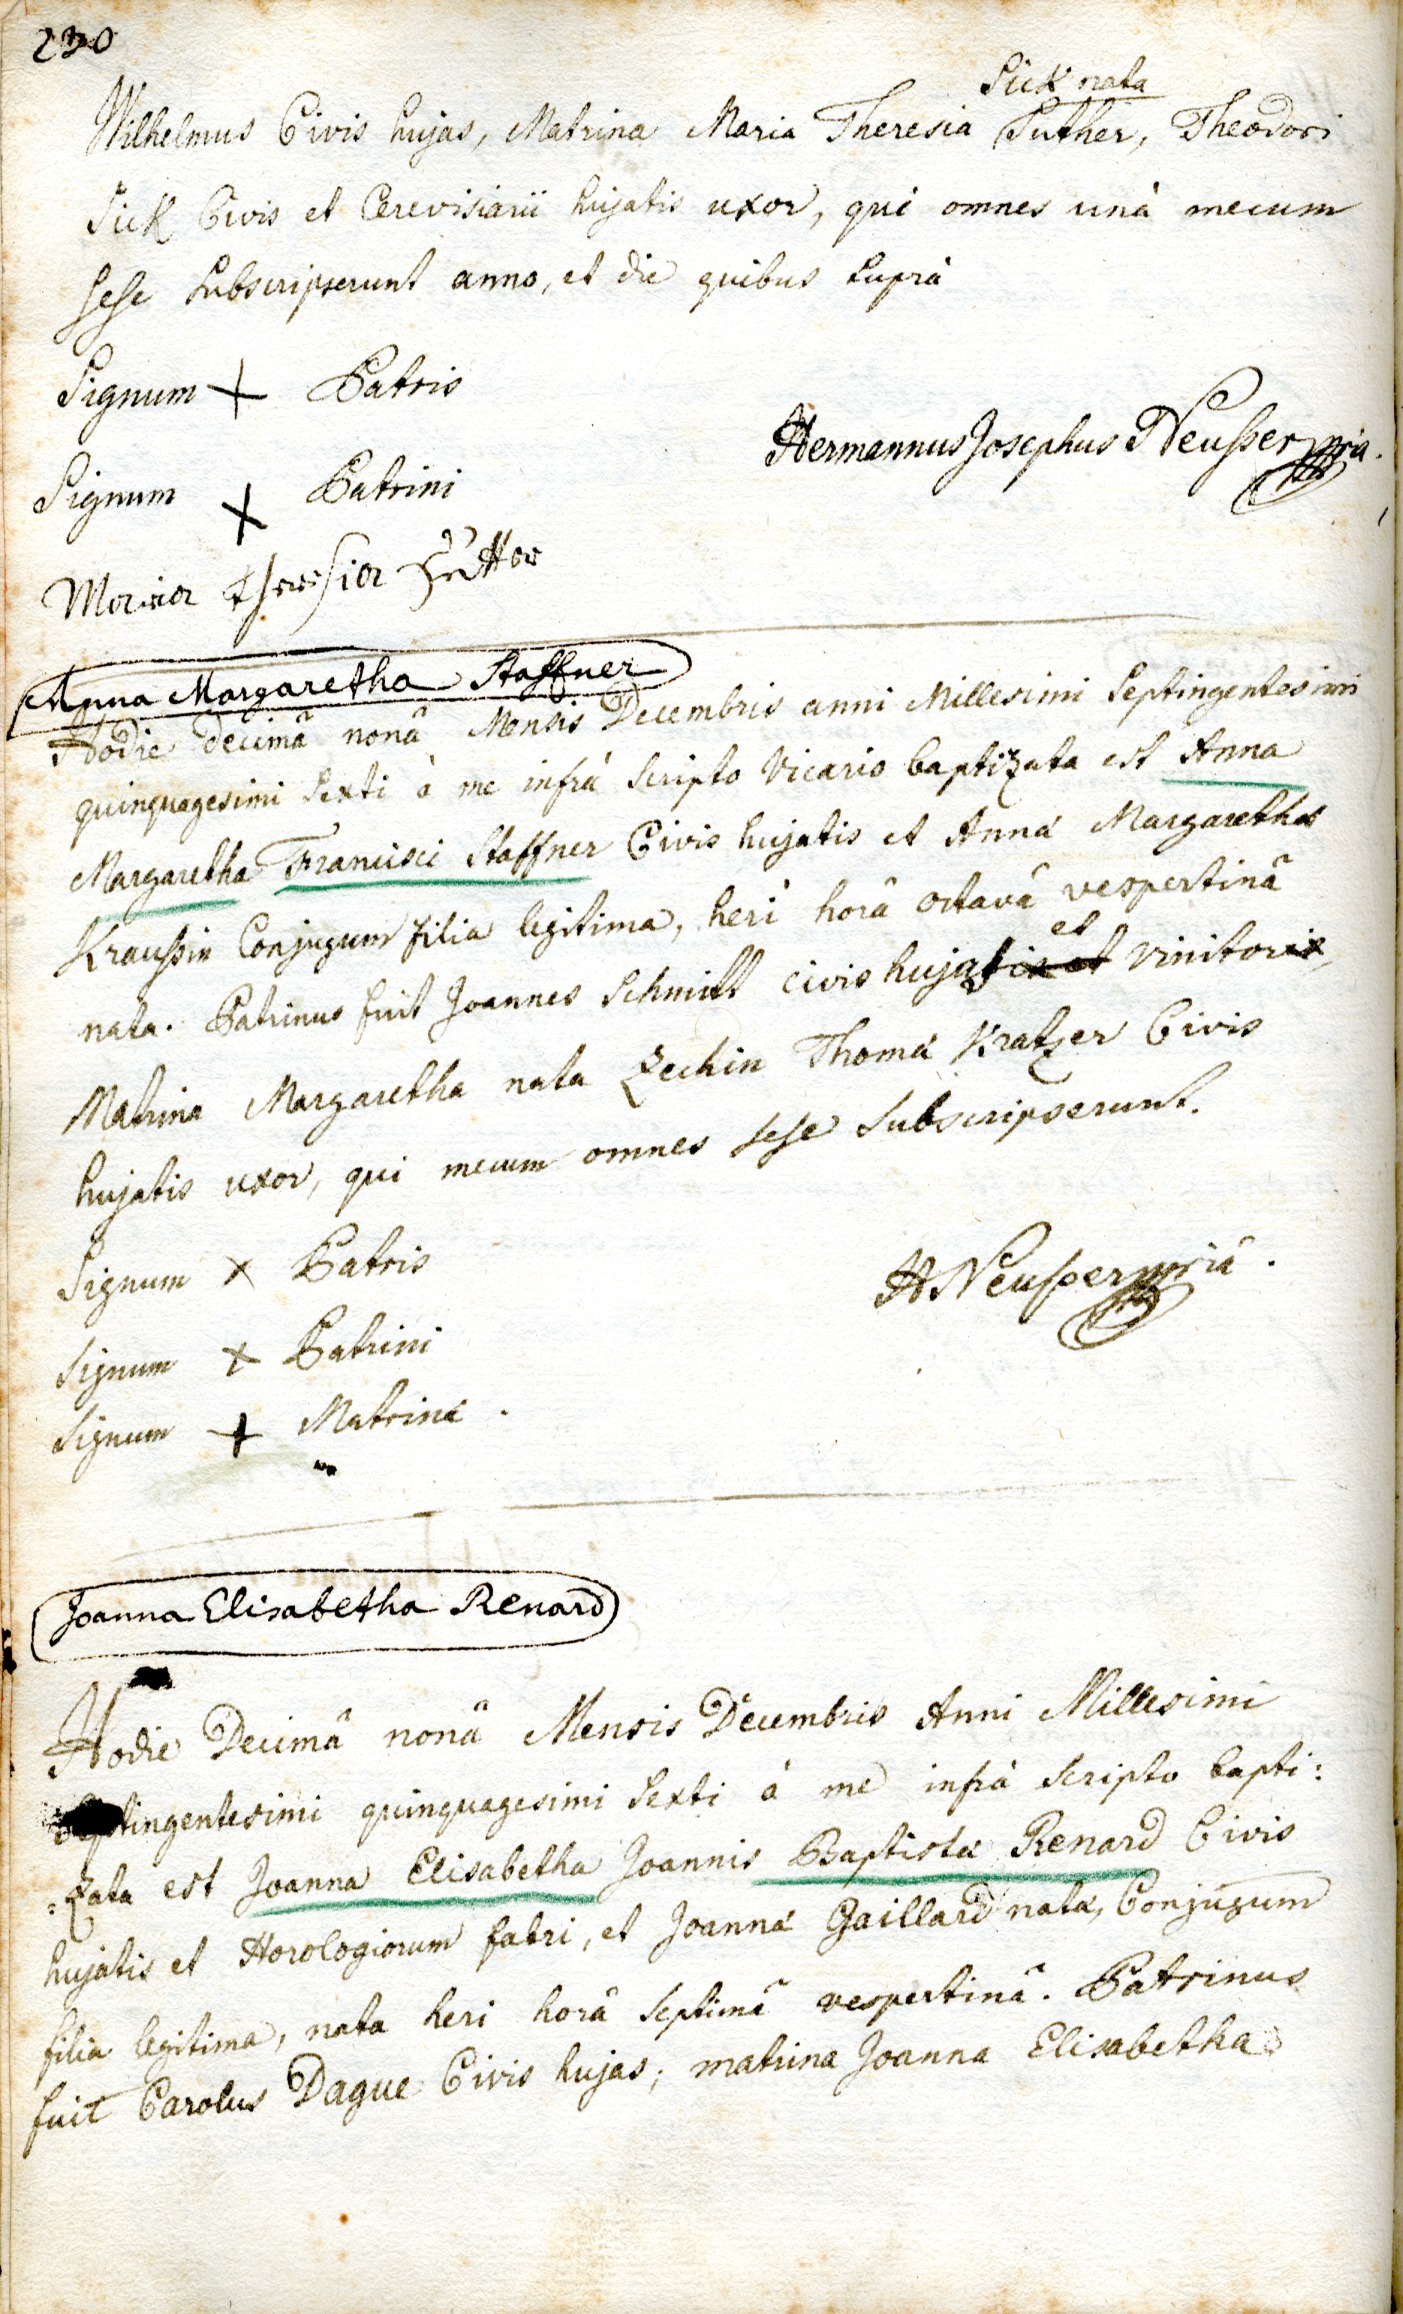 230
Sick nata
Wilhelmus Civis hujas, Matrina Maria Theresia Suther, Theodori
Sick Civis et Cerevisiarii hujatis uxor, qui omnes unà mecum
sese Subscripserunt anno, et die quibus suprà
Signum + Patris
Hermannus Josephus Neußer mpria.
Signum + Patrini
Maria Theresia
Anna Margaretha Staffner
Hodie decimâ nonâ Mensis Decembris anni Millesimi Septingentesimi
quinquagesimi Sexti à me infrà scripto Vicario baptizata est Anna
Margaretha Francisci Staffner Civis hujatis et Annæ Margarethæ
Kraußin Conjugum filia legitima, heri horâ octavâ vespertinâ
nata. Patrinus fuit Joannes Schmitt civis hujas et vinitor,
Matrina Margaretha nata Zechin Thomæ Kratzer Civis
hujatis uxor, qui mecum omnes sese Subscripserunt.
Signum + Patris
H Neußer mpriâ.
Signum + Patrini
Signum + Matrinæ.
Joanna Elisabetha Renard
Hodie Decimâ nonâ Mensis Decembris Anni Millesimi
Septingentesimi quinquagesimi Sexti à me infrà scripto bapti:
:zata est Joanna Elisabetha Joannis Baptistæ Renard Civis
hujatis et Horologiorum fabri, et Joannæ Gaillard natæ, Conjugum
filia legitima, nata heri horâ Septimâ vespertinâ. Patrinus
fuit Carolus Dague Civis hujas; matrina Joanna Elisabetha